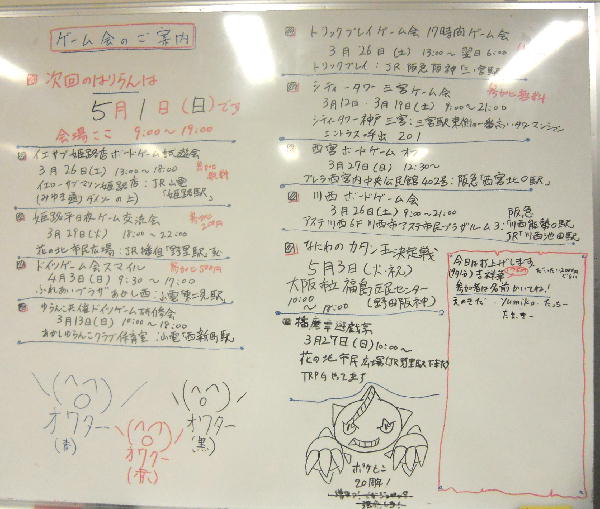 ゲーム会のご案内
次回のはりらんは
5月1日(日)です
会場ここ 9:00〜19:00
イエサブ姫路店ボードゲーム試遊会
3月26日(土) 13:00〜18:00
参加費無料
イエローサブマリン姫路店:JR山電
(みゆき通り ダイソンの上)「姫路駅」
姫路平日夜ゲーム交流会
3月29日(火) 18:00〜22:00
参加費200円
花の北市民広場:JR播但「野里駅」
ドイツゲーム会スマイル
参加費500円
4月3日(日) 9:30〜17:00
ふれあいプラザあかし西:山電
ゆらこ兵優ドイツゲーム研修会
3月13日(日) 10:00〜18:00
あかしゆらんこクラブ保育室:山電「西新町駅」
\(^o^)/
オワター
(青)
\(^o^)/
オワター
(赤)
\(^o^)/
オワター
(黒)
トリックプレイゲーム会 17時間ゲーム会
3月26日(土) 13:00〜翌日6:00
トリックプレイ:JR・阪急・阪神「三宮駅」
シティータワー三宮ゲーム会
参加費無料
3月12日・3月19日(土) 9:00〜21:00
シティータワー神戸三宮:三宮駅東側の一番高いタワーマンション
エントランス呼出 201
西宮ボードゲームオフ
3月27日(日) 12:30〜
プレラ西宮内中央公民館402号:阪急「西宮北口駅」
川西ボードゲーム会
3月26日(土) 9:00〜21:00
アステ川西6F 川西市アステ市民プラザルーム3:
阪急「川西能勢口駅」
JR「川西池田駅」
なにわのカタン王決定戦
5月3日(火・祝)
大阪市立福島区民センター
10:00〜18:00 (野田阪神)
播磨卓遊戯京
3月27日(日) 10:00〜
花の北市民広場(JR野里駅下車すぐ)
TRPGやってます
ポケもこ
20周年!
今日は打上げします
だいたい2000円ぐらい
参加者は名前かいてね!
えのきだ Yumiko たっきー